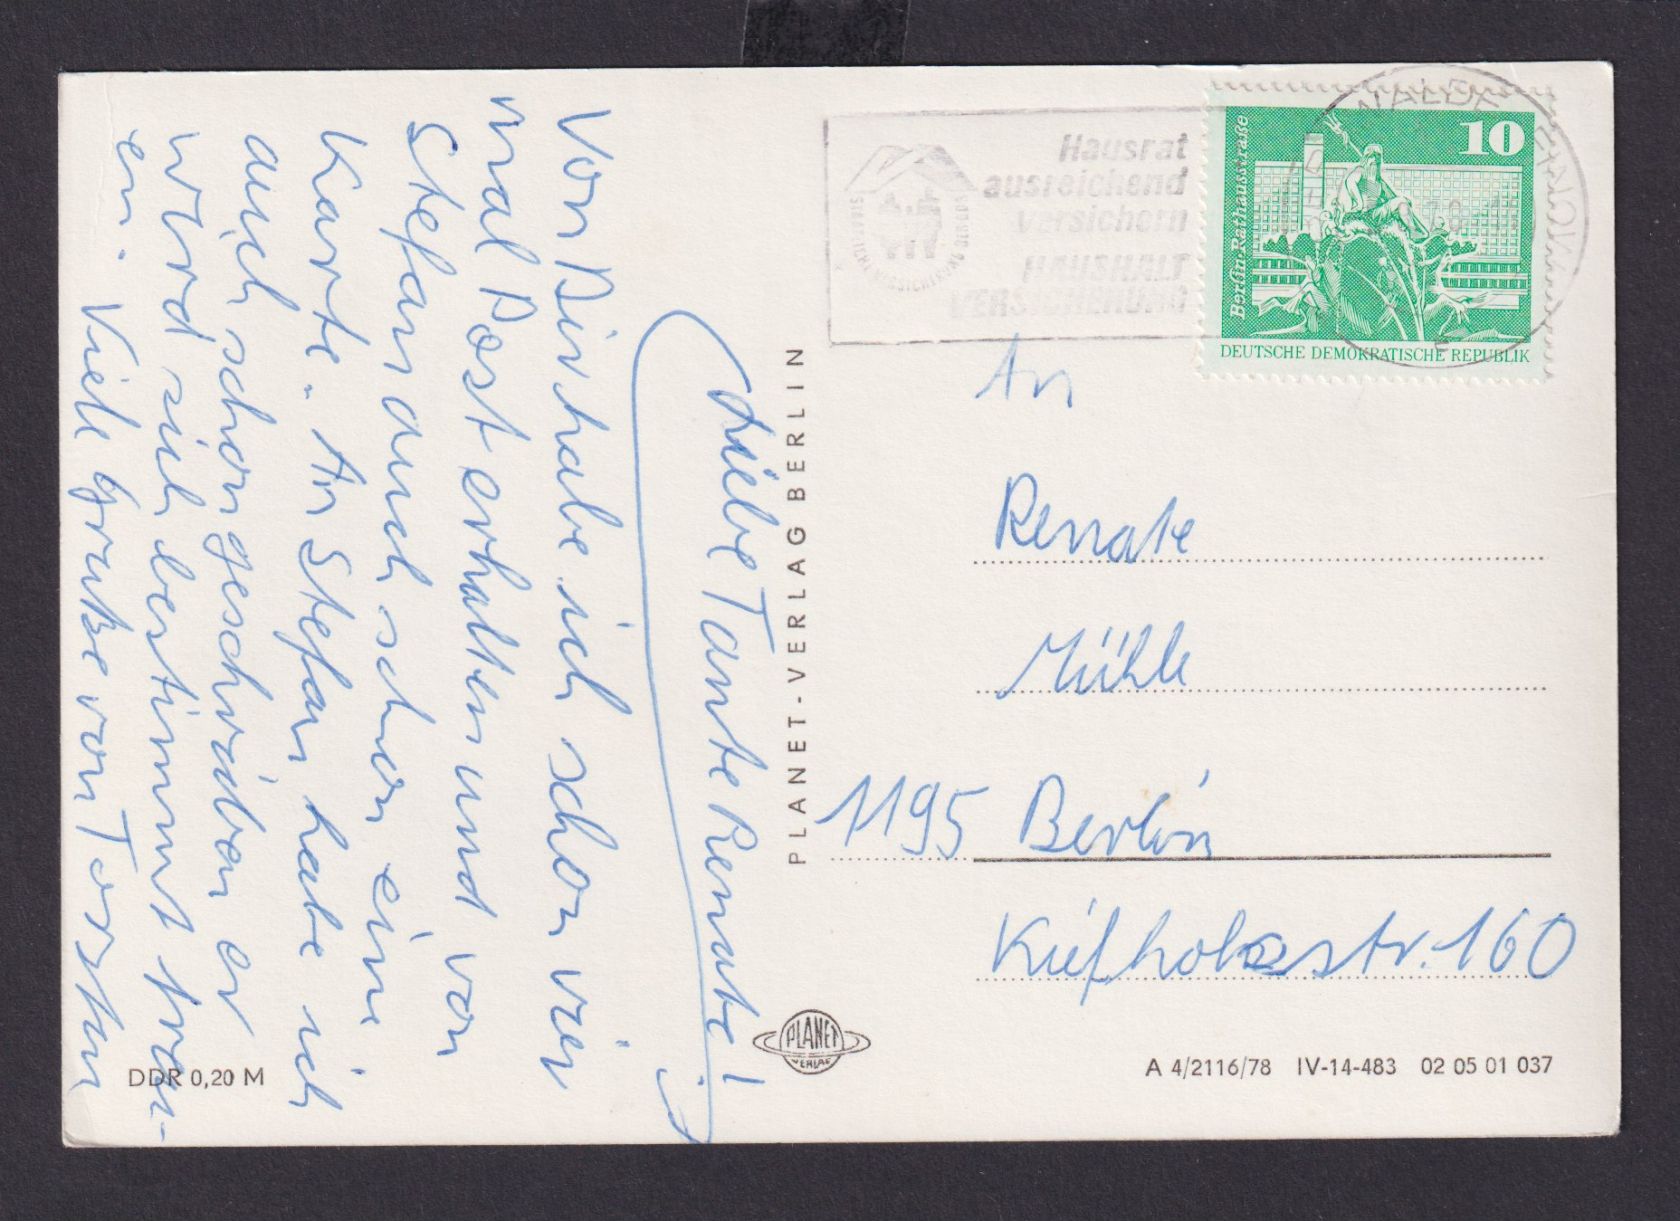 Liebe Tante Renate!
Von Dir habe ich schon vier
mal Post erhalten und von
Stefan auch schon eine
Karte. An Stefan habe ich
auch schon geschrieben er
wird sich bestimmt freu-
en. Viele Grüße von Torsten
PLANET-VERLAG BERLIN
PLANET
VERLAG
DDR 0,20 M
Hausrat
ausreichend
versichern
HAUSHALT
VERSICHERUNG
STAATLICHE VERSICHERUNG DER DDR
10
Berlin·Rathausstraße
DEUTSCHE DEMOKRATISCHE REPUBLIK
An
Renate
Mühle
1195 Berlin
Kiefholzstr. 160
A 4/2116/78 IV-14-483 02 05 01 037